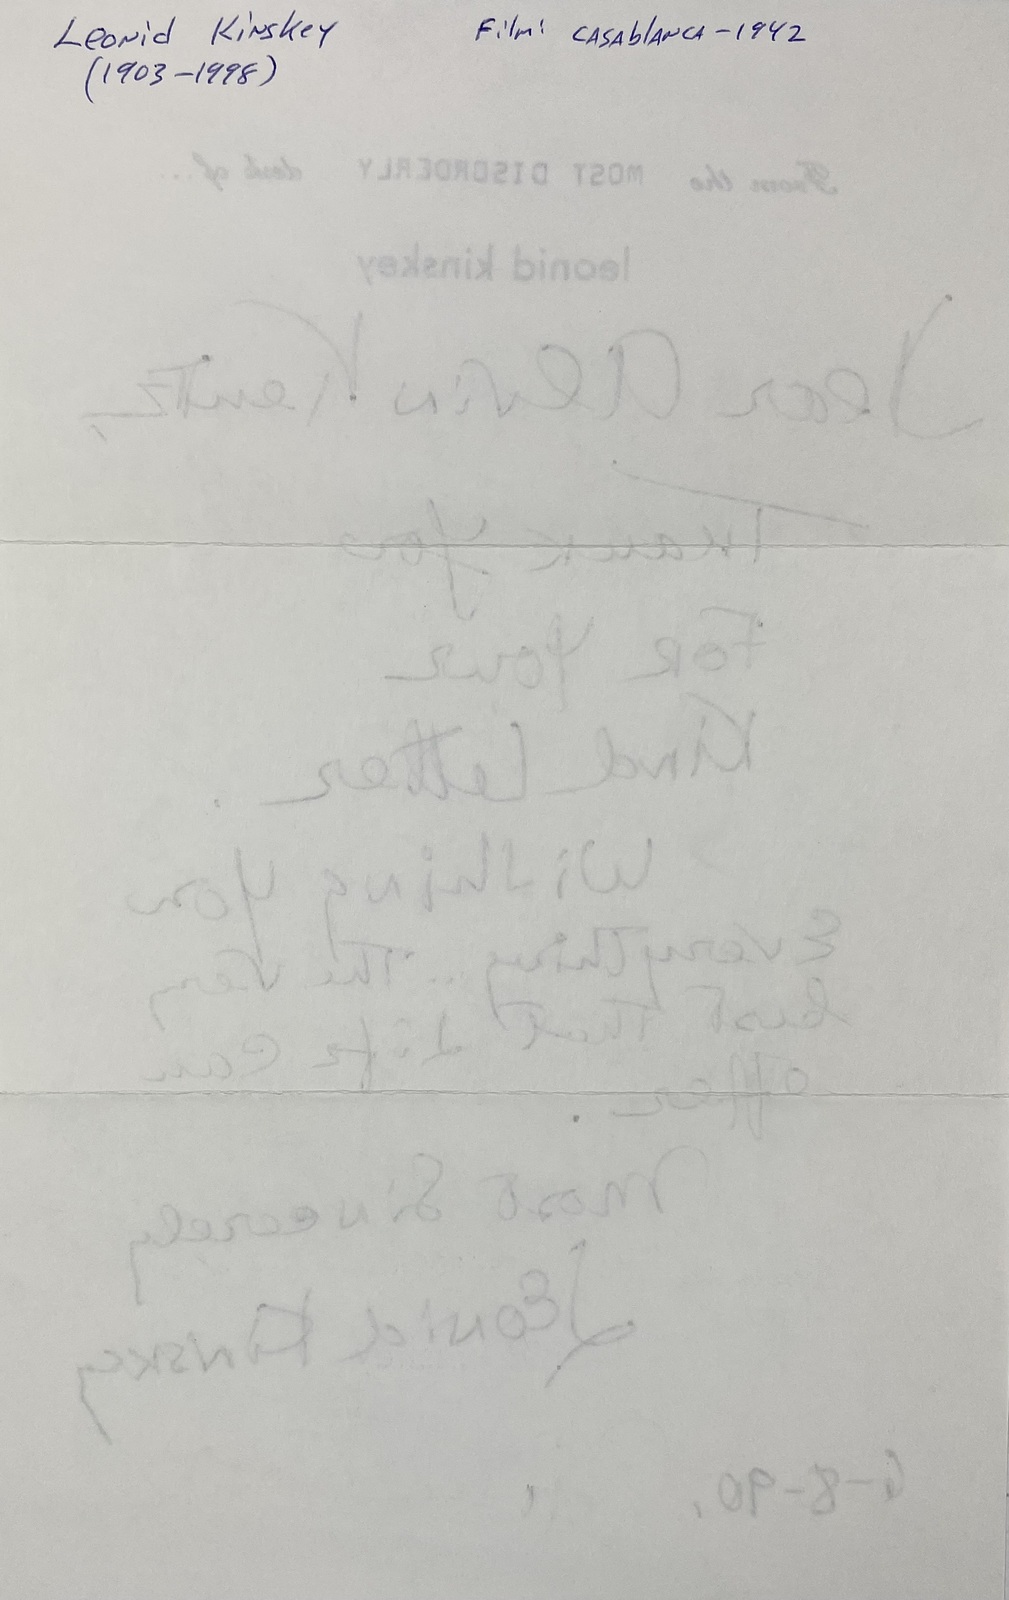 Leonid Kinskey Film: CASAblANCA-1942
(1903-1998)
From the MOST DISORDERLY desk of...
leonid kinskey
Dear Alvin Kentz,
Thank you
FOR YOUR
Kind Letter.
Wishing you
Everything... The very
best that Life can
offer.
Most Sincerely
Leonid Kinskey
6-8-90.